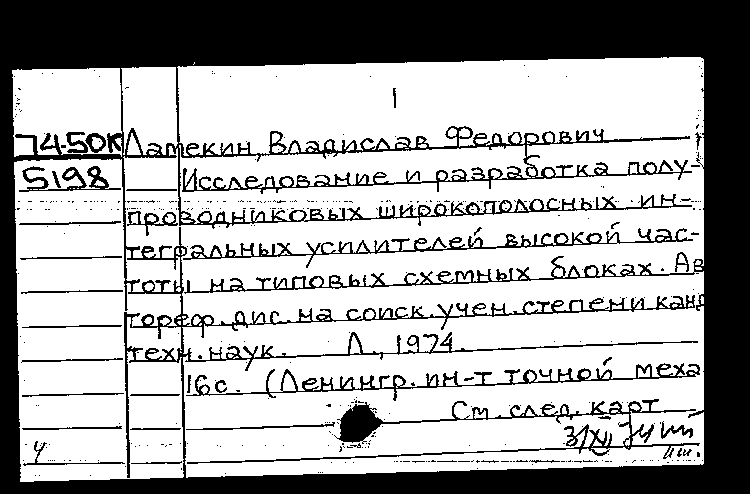 1
74-50К Латекин, Владислав Федорович
5198 Исследование и разработка полу-
проводниковых широкополосных ин-
тегральных усилителей высокой час-
тоты на типовых схемных блоках. Ав
тореф. дис. на соиск. учен. степени канд
техн. наук. Л., 1974.
16с. (Ленингр. ин-т точной меха
См. след. карт
3/XII 74
4